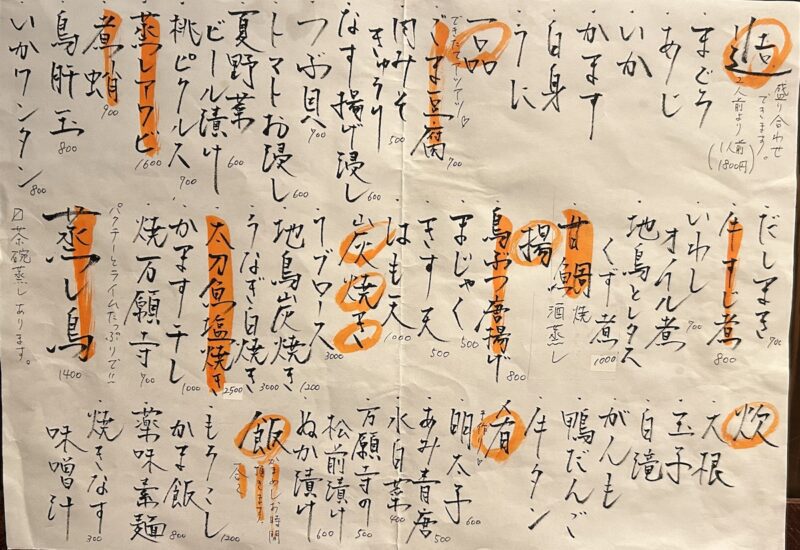 造
盛り合わせ
できます。
2人前より
(1人前
1800円)
・まぐろ
・あじ
・いか
・かます
・白身
・うに
一品
・ごま豆腐 700
・肉みそ
きゅうり 500
・なす揚げ浸し 600
・つぶ貝 900
・トマトお浸し 600
・夏野菜
ビール漬け 600
・桃ピクルス 700
・蒸しアワビ 1600
・煮蛸 900
・鳥肝玉 800
・いかワンタン 800
・だしまき 700
・牛すじ煮 800
・いわし
オイル煮 700
・地鳥とレタス
くず煮 1000
・甘鯛 焼
酒蒸し
揚
・鳥ぶつ唐揚げ 800
・まじゃく 500
・きす天 500
・はも天 1000
炭焼き
・リブロース 3000
・地鳥炭焼き 1200
・うなぎ白焼き 3000
・太刀魚塩焼き 2500
・かます干し 1000
・焼万願寺 700
パクチーとライムたっぷりで!!
・蒸し鳥 1400
茶碗蒸しあります。
炊
・大根
・玉子
・白滝
・がんも
・鴨だんご
・牛タン
肴
・明太子 600
・あみ青唐 500
・水白菜 400
・万願寺の
松前漬け 500
・ぬか漬け 600
飯
・もろこし 1200
・かま飯 800
・薬味素麺
・焼きなす 300
味噌汁